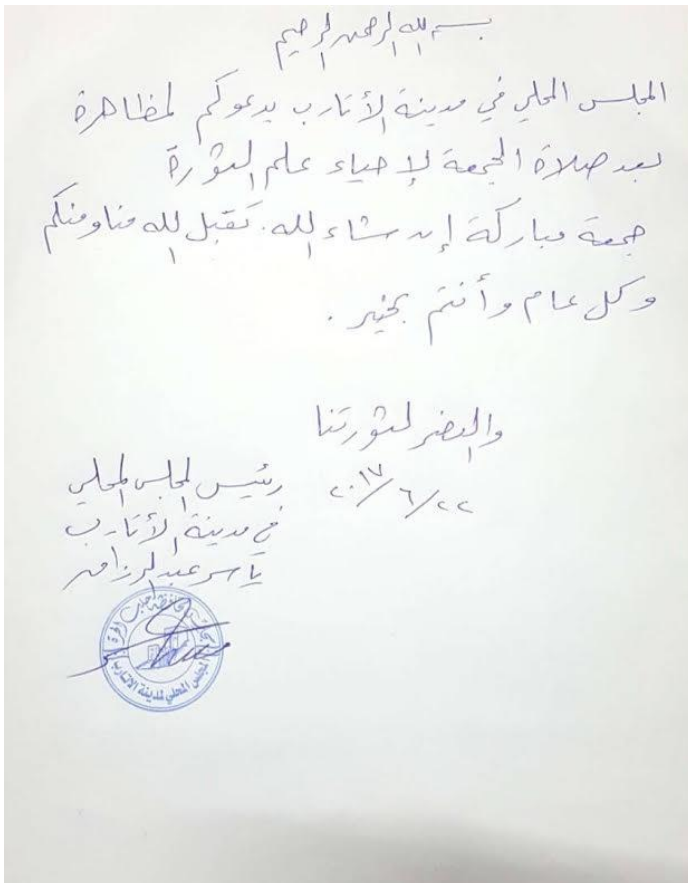 بسم الله الرحمن الرحيم
المجلس المحلي في مدينة الأتارب يدعوكم لمظاهرة
بعد صلاة الجمعة لإحياء علم الثورة
جمعة مباركة إن شاء الله. تقبل الله منا ومنكم
وكل عام وأنتم بخير.
والنصر لثورتنا
٢٠١٧/٦/٢٢
رئيس المجلس المحلي
في مدينة الأتارب
ياسر عبد الرزاق
محافظة حلب الحرة
المجلس المحلي لمدينة الاتارب